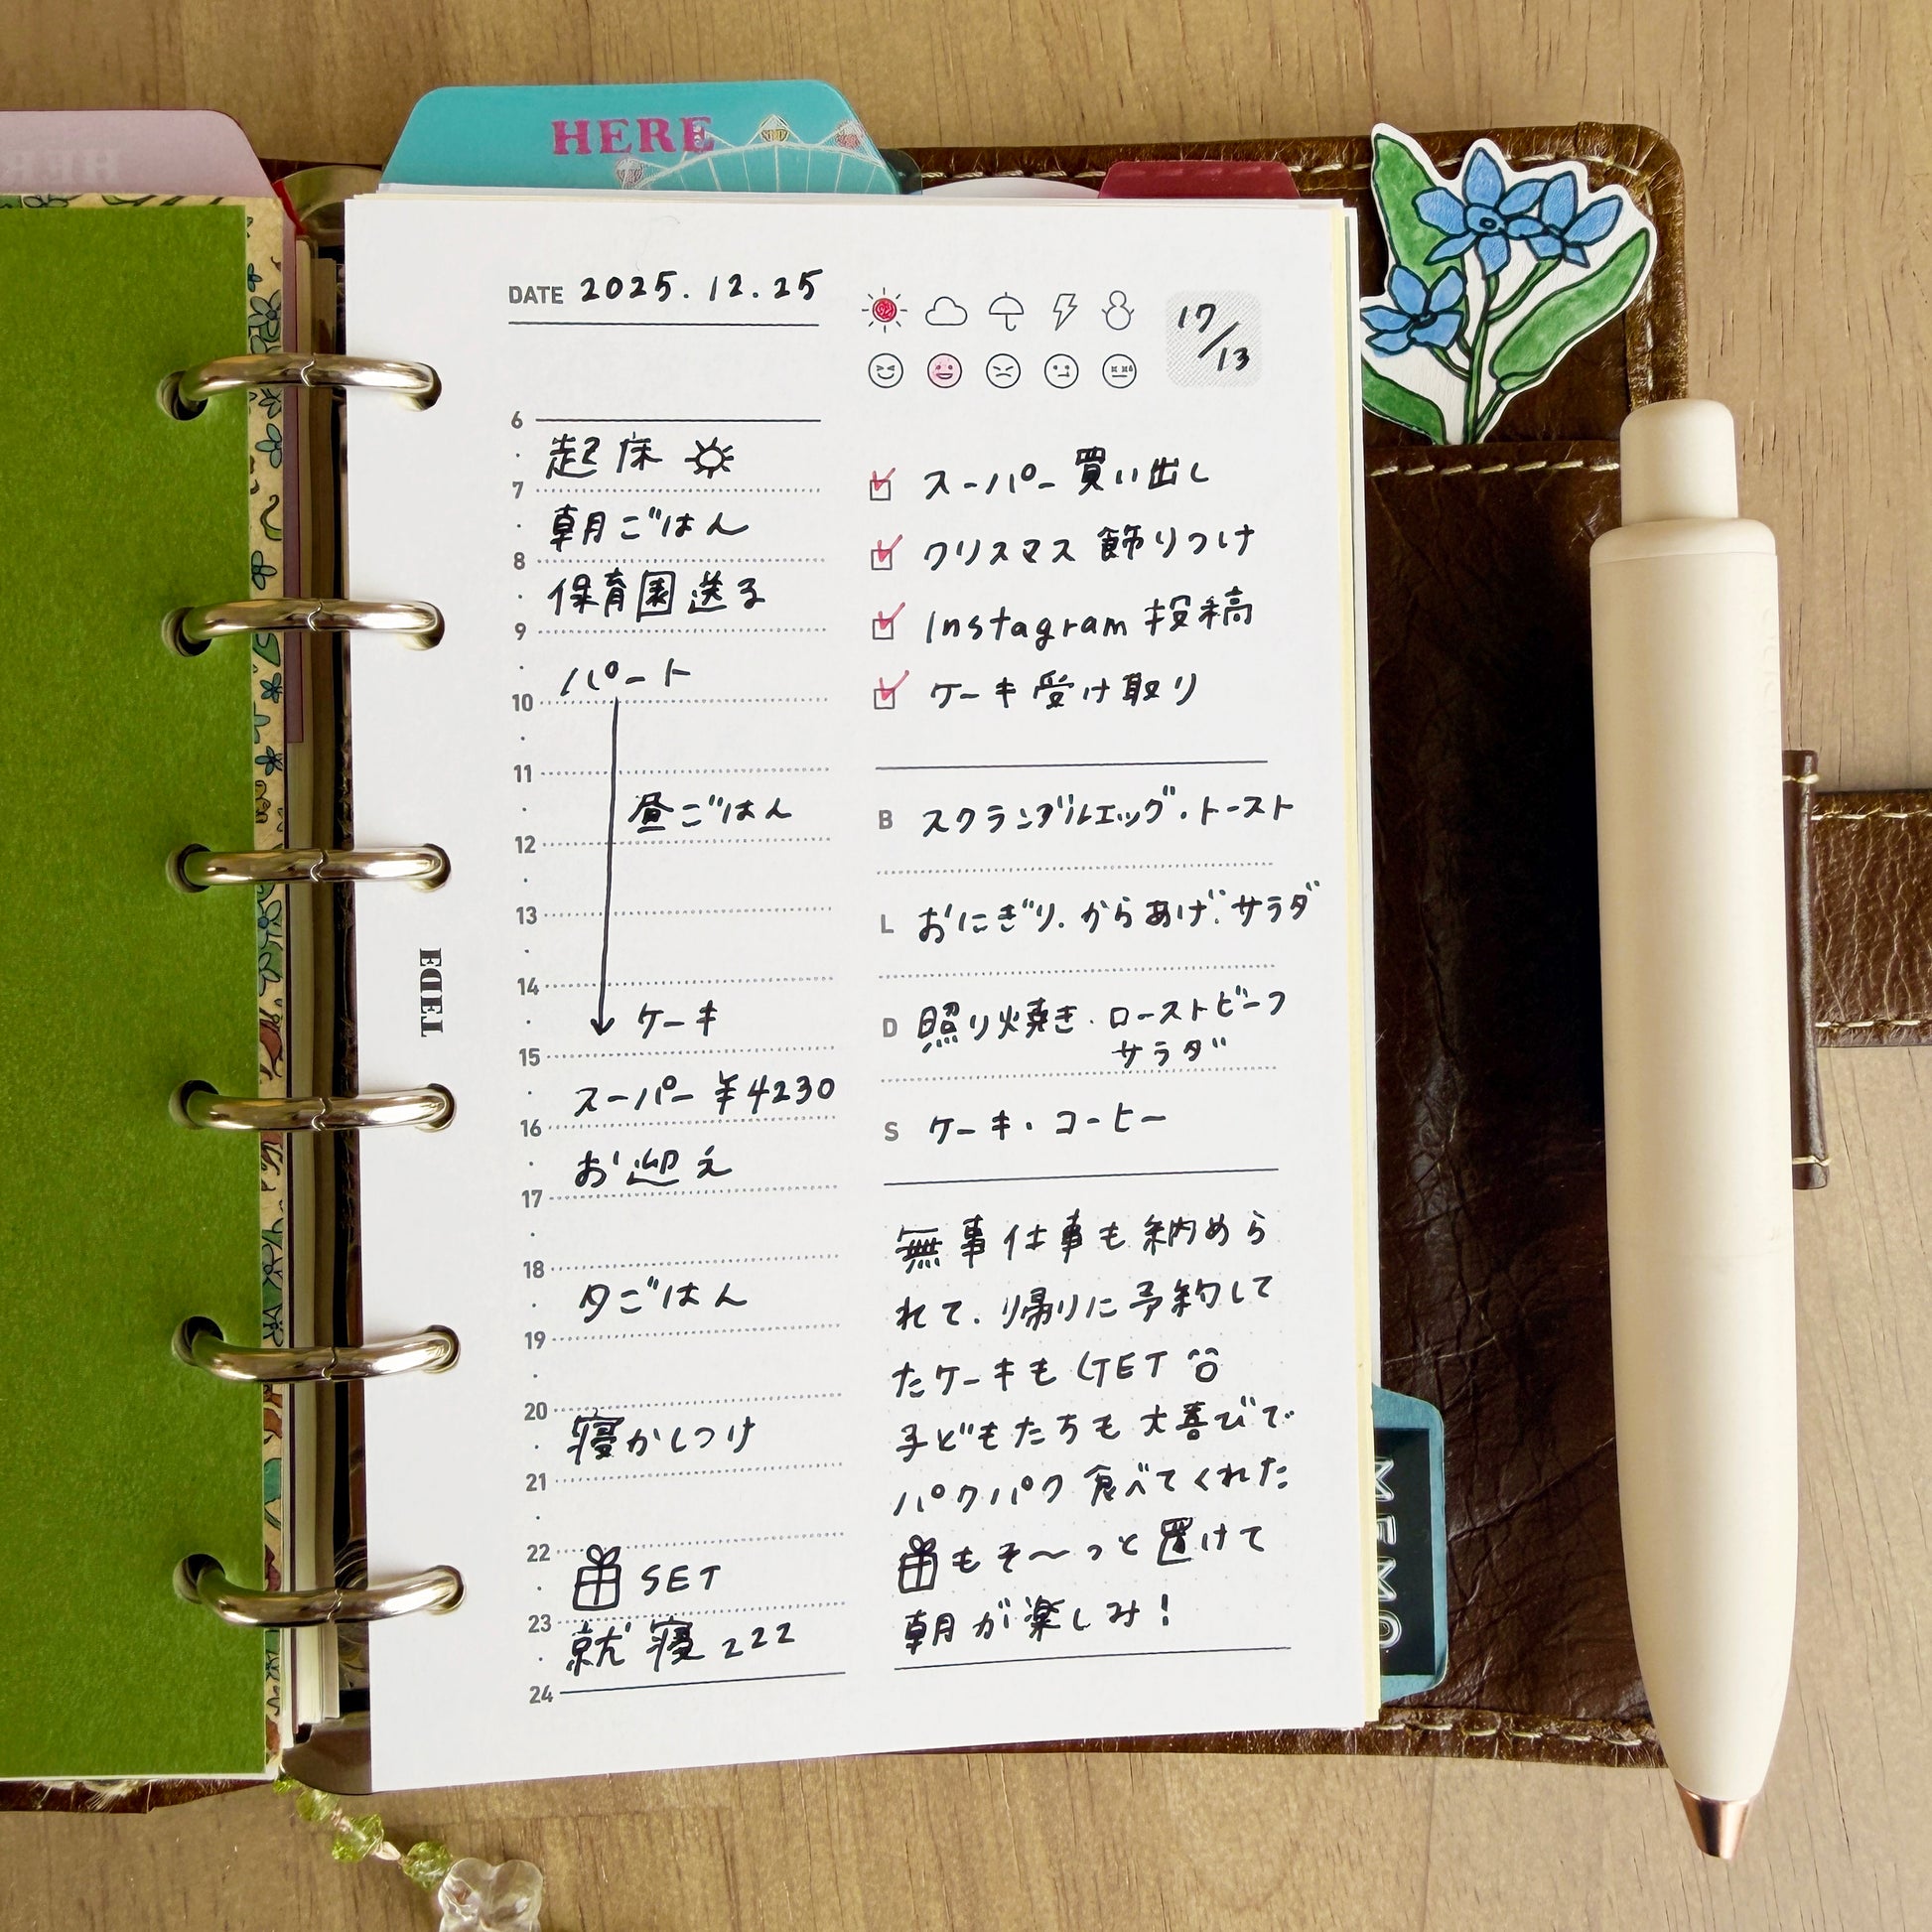 HERE
DATE 2025.12.25
17/13
6
起床
7
朝ごはん
8
保育園送る
9
パート
10
11
昼ごはん
12
13
14
ケーキ
15
スーパー ¥4230
16
お迎え
17
18
夕ごはん
19
20
寝かしつけ
21
22
SET
23
就寝 zzz
24
スーパー買い出し
クリスマス飾りつけ
Instagram投稿
ケーキ受け取り
B スクランブルエッグ・トースト
L おにぎり・からあげ・サラダ
D 照り焼き・ローストビーフ
サラダ
S ケーキ・コーヒー
無事仕事も納めら
れて、帰りに予約して
たケーキもGET
子どもたちも大喜びで
パクパク食べてくれた
もそ〜っと置けて
朝が楽しみ!
TEDE
MEMO